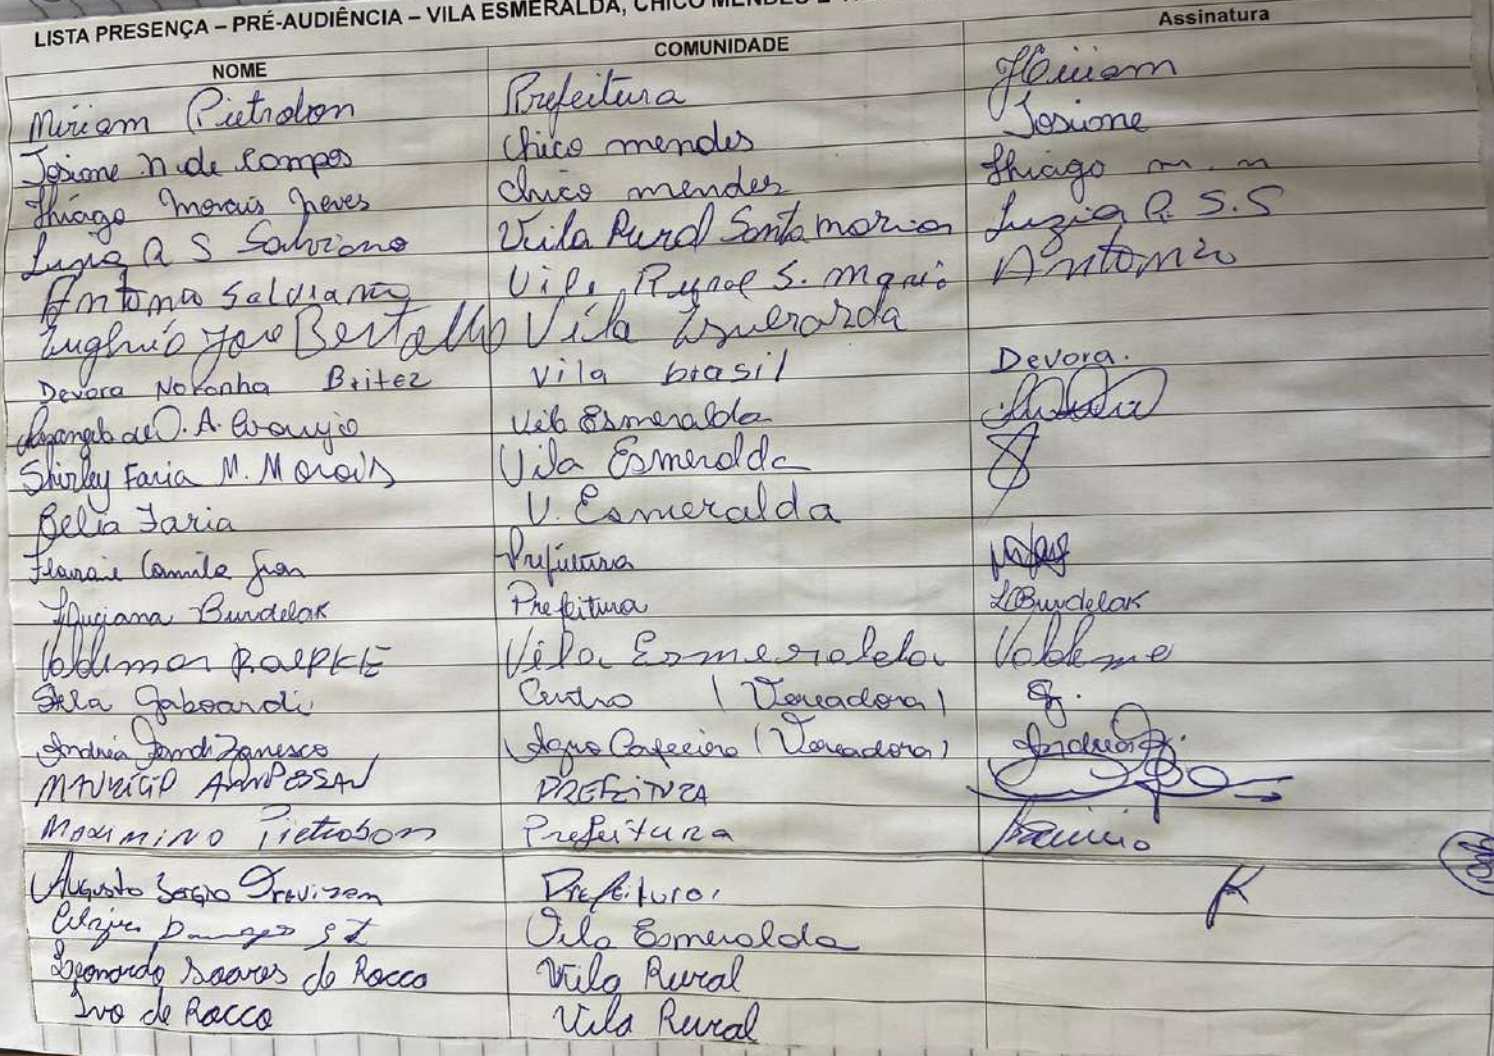 LISTA PRESENÇA – PRÉ-AUDIÊNCIA – VILA ESMERALDA, CHICO MENDES E
NOME COMUNIDADE Assinatura
Miriam Pietrobon Prefeitura Miriam
Josiane N. de Campos Chico mendes Josiane
Thiago Morais Neves Chico mendes Thiago m. n
Luzia A S Salviano Vila Rural Santa maria Luzia A. S.S
Antonio Salviano Vila Rural S. maria Antonio
José Vila
Devora Noronha Britez Vila brasil Devora.
de O. A. Araujo Vila Esmeralda
Shirley Faria M. Morais Vila Esmeralda
Celia Faria V. Esmeralda
Camila Prefeitura
Luciana Burdelak Prefeitura LBurdelak
Valdemar Vila Esmeralda
Gaboardi Centro (Vereadora)
Andréia Zanesco (Vereadora)
PREFEITURA
Maximino Pietrobom Prefeitura
Augusto Sergio Trevizam Prefeitura
Vila Esmeralda
Leonardo Soares de Rocco Vila Rural
Ivo de Rocco Vila Rural